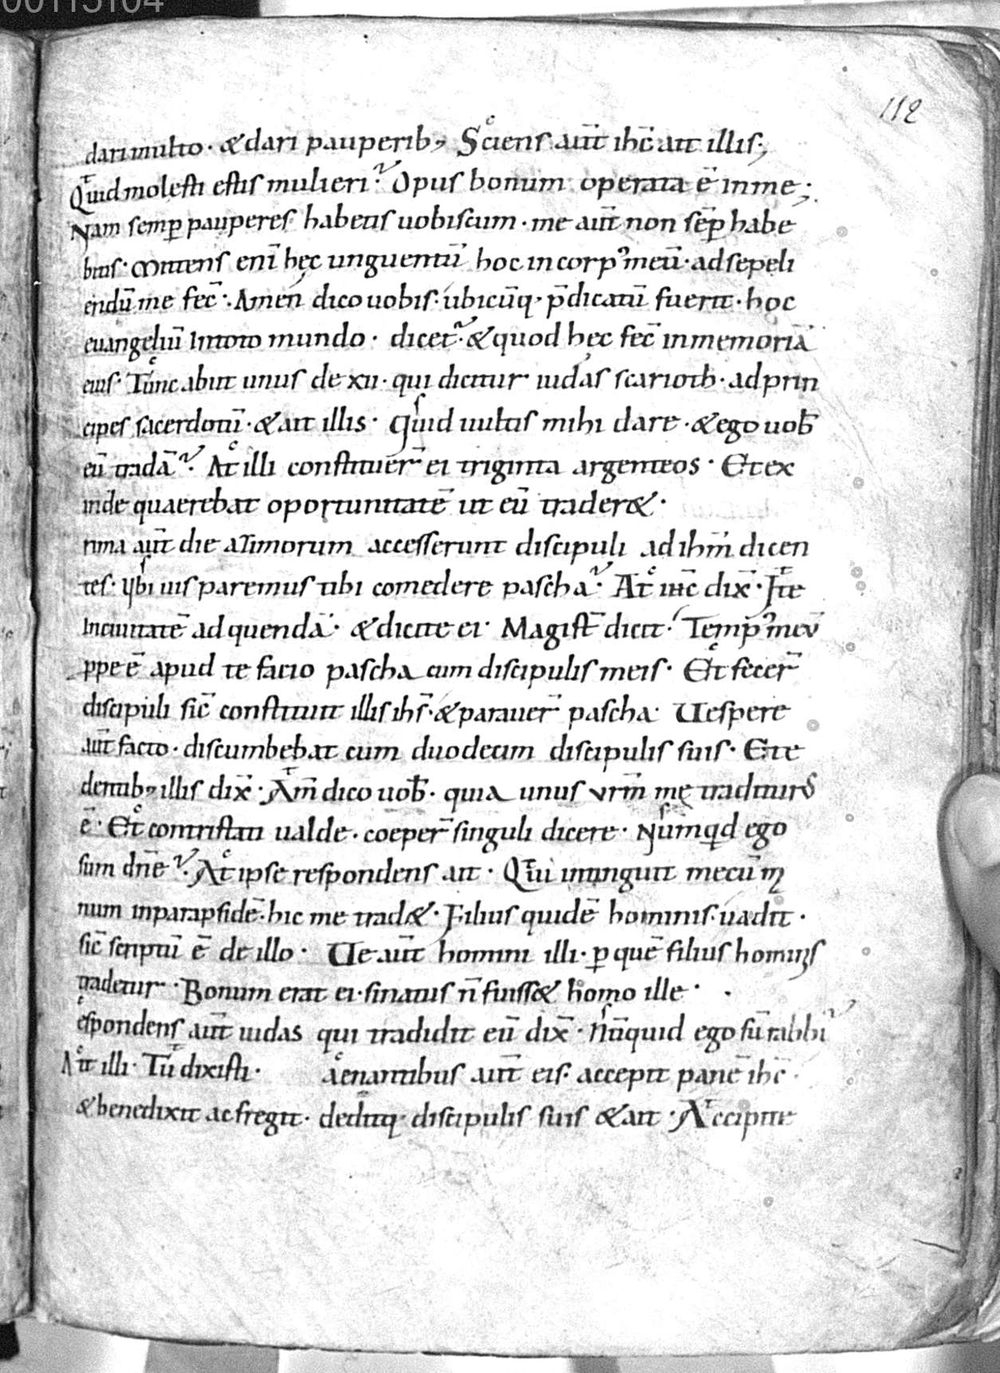 00115104
112
dari multo · & dari pauperib; Sciens aut̄ ihc̄ ait illis;
Quid molesti estis mulieri? Opus bonum operata ē in me;
Nam semꝑ pauperes habetis uobiscum · me aut̄ non sēꝑ habe
bitis · Mittens eni̅ hęc unguentū hoc in corpꝰ meū · ad sepeli
endū me fec̄ · Amen dico uobis · ubicūq · p̄dicatū fuerit · hoc
euangeliū In toto mundo · dicet᷑ · & quod hęc fec̄ in memoriā
eius · Tunc abiit unus de xii · qui dicitur iudas scarioth · ad prin
cipes sacerdotū · & ait illis · Quid uultis mihi dare · & ego uob̄
eū tradā? At illi constituer̄ ei triginta argenteos · Et ex
inde quaerebat oportunitatē ut eū trader& ·
rima aut̄ die azimorum accesserunt discipuli ad ihm̄ dicen
tes · Ubi uis paremus tibi comedere pascha? At ihc̄ dix̄ · Ite
In ciuitatē ad quendā · & dicite ei · Magist̄ dicit · Temp̄ꝰ meū
ppe ē apud te facio pascha cum discipulis meis · Et fecer̄
discipuli sic̄ constituit illis ihs̄ · & parauer̄ pascha Uespere
aut̄ facto · discumbebat cum duodecim discipulis suis · Et e
dentib; illis dix̄ · Am̄ dico uob̄ · quia unus vrm̄ me traditurꝰ
ē · Et contristati ualde · coeper̄ singuli dicere · Numqd ego
sum dn̄e? At ipse respondens ait · Qui intinguit mecū m
num in parapsidē · hic me trad& · Filius quidē hominis · uadit ·
sic̄ scriptū ē de illo · Ue aut̄ homini illi · ꝑ quē filius hominis
tradetur · Bonum erat ei · si natus n̄ fuiss& homo ille ·
espondens aut̄ iudas qui tradidit eū dix̄ · Nūquid ego sū rabbi?
Ait illi · Tu dixisti · aenantibus aut̄ eis · accepit panē ihc̄ ·
& benedixit ac fregit · deditq · discipulis suis & ait · Accipite